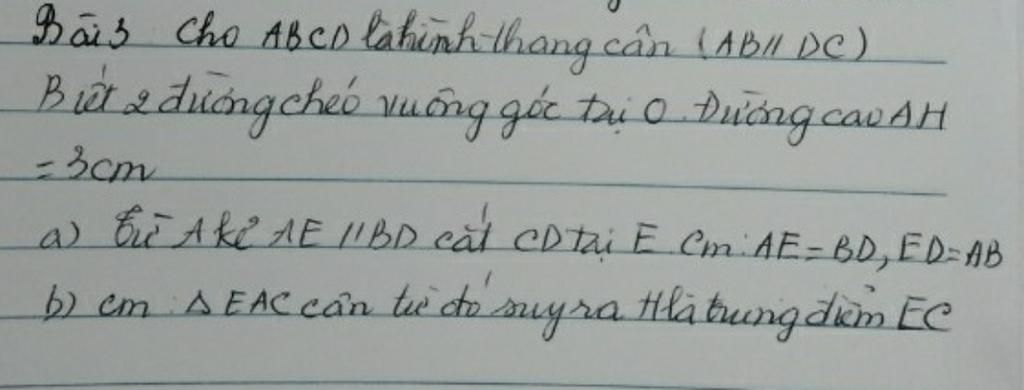 Bài 3 Cho ABCD là hình thang cân (AB // DC)
Biết 2 đường chéo vuông góc tại O. Đường cao AH
= 3cm
a) Từ A kẻ AE // BD cắt CD tại E Cm: AE = BD, ED = AB
b) cm Δ EAC cân từ đó suy ra H là trung điểm EC